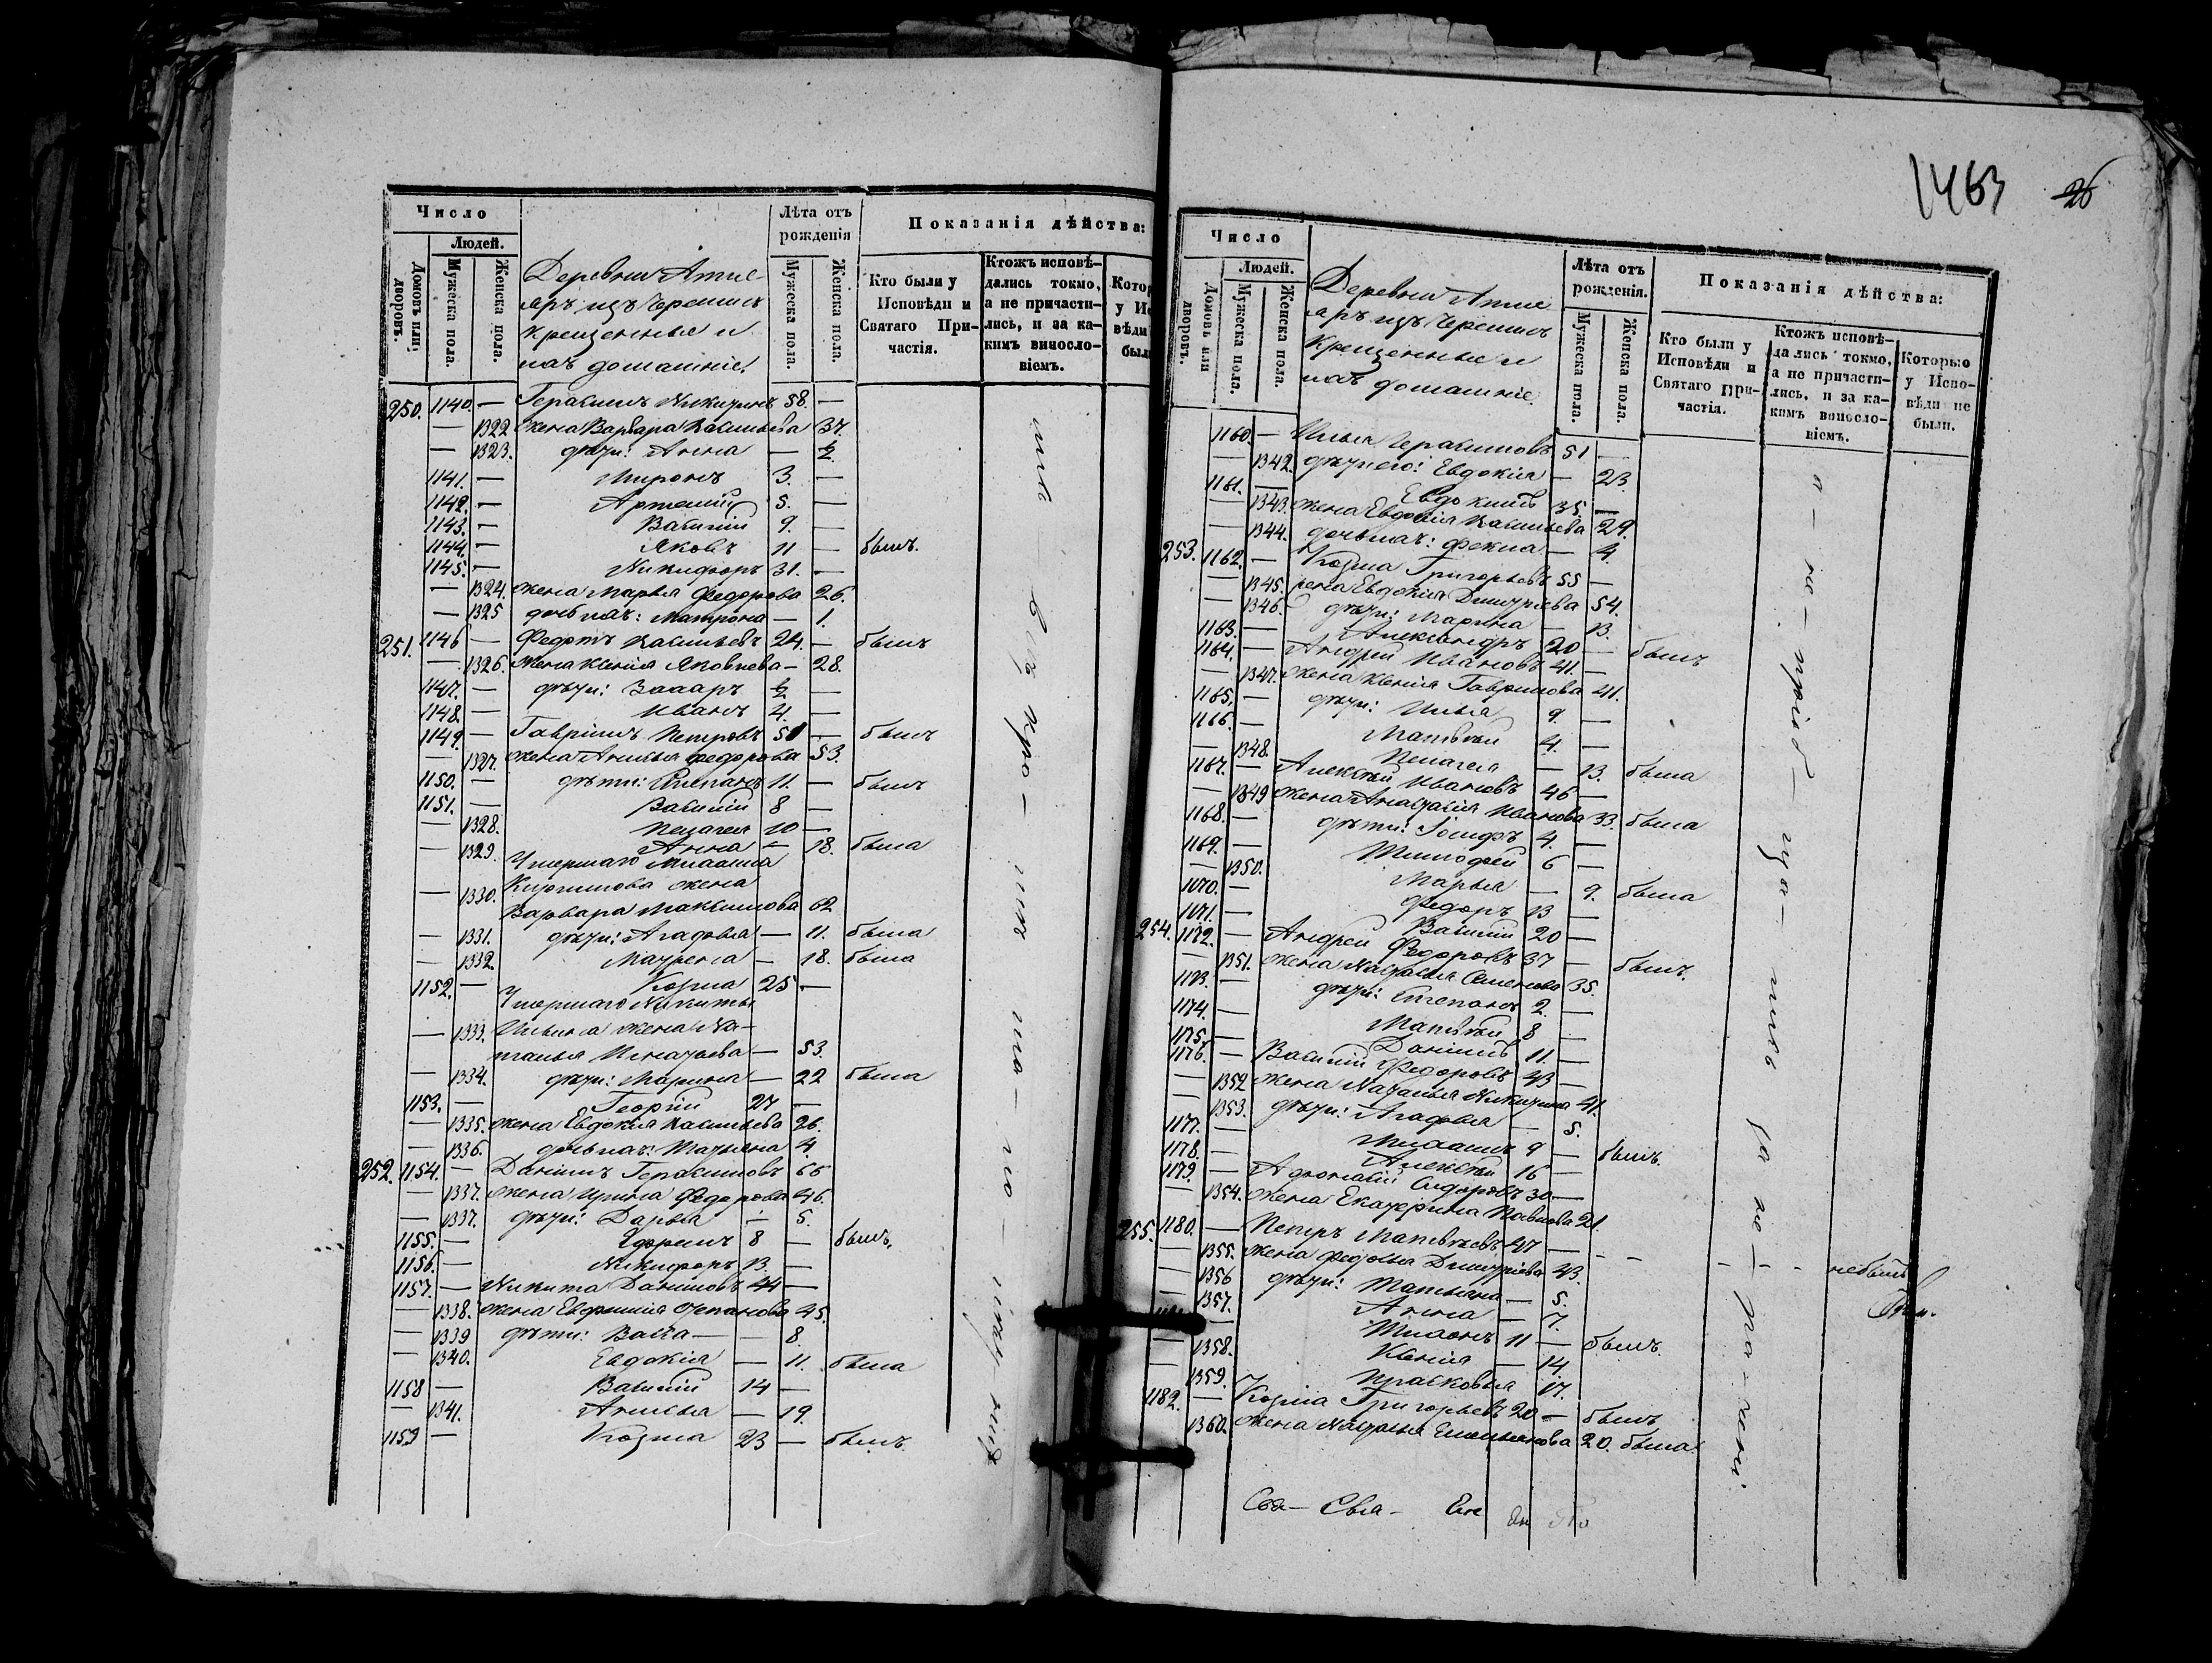 Число
Людей.
Домовъ или дворовъ.
Мужеска пола.
Женска пола.
Деревни Атле-
аръ изъ Черемисъ
крещенные и
ихъ домашніе.
Лѣта отъ рожденія
Мужеска пола.
Женска пола.
Показанія дѣйства:
Кто были у Исповѣди и Святаго Причастія.
Ктожъ исповѣ-
дались токмо,
а не причасти-
лись, и за ка-
кимъ винosло-
віемъ.
250. 1140. — Герасимъ Никитинъ 58. —
— 1322 жена Варвара Васильева 37.
— 1323. дѣти: Анна — ½
1141. — Миронъ 3. —
1142. — Артемій 5. —
1143. — Василій 9. —
1144. — Яковъ 11 — былъ.
1145. — Никифоръ 31. —
— 1324. жена Марья Федорова 26.
— 1325 дочь ихъ: Матрона — 1.
251. 1146 — Федотъ Васильевъ 24. — былъ
— 1326. жена Ксенія Яковлева — 28.
1147. — дѣти: Захаръ ½ —
1148. — Иванъ 4. —
1149. — Гавріилъ Петровъ 51 — былъ
— 1327. жена Анисья Федорова 53.
1150. — дѣти: Степанъ 11. — былъ
1151. — Василій 8 —
— 1328. Пелагея 10 —
— 1329. Анна — 18. была
Умершаго Михаила
— 1330. жена
Варвара Максимова 62
— 1331. дѣти: Агафья — 11. была
— 1332. Маурена — 18. была
1152. — Козма 25 —
Умершаго Никиты
— 1333. Ильина жена На-
талья Игнатьева — 53.
— 1334. дѣти: Марина — 22 была
1153. — Георгій 27 —
— 1335. жена Евдокія Васильева 26.
— 1336. дочь ихъ: Татьяна 4
252. 1154. — Даніилъ Герасимовъ 65
— 1337. жена Ирина Федорова 46.
— 1337. дѣти: Дарья — 5.
1155. — Ефремъ 8 — былъ.
1156. — Никифоръ 13. —
1157. — Никита Даниловъ 44 —
— 1338. жена Евфимія Степанова 45.
— 1339 дѣти: Васса — 8.
— 1340. Евдокія — 11. была
1158 — Василій 14 —
— 1341. Анисья — 19.
1159 — Козма 23 — былъ
1463 26
Число
Людей.
Домовъ или дворовъ.
Мужеска пола.
Женска пола.
Деревни Атле
аръ изъ Черемисъ
Крещенные и
ихъ домашніе.
Лѣта отъ рожденія.
Мужеска пола.
Женска пола.
Показанія дѣйства:
Кто были у Исповѣди и Святаго Причастія.
Ктожъ исповѣ-
дались токмо,
а не причасти-
лись, и за ка-
кимъ виносло-
віемъ.
Которые у Испо-
вѣди не
были.
1160. — Илья Герасимовъ 51 —
— 1342. дѣти его: Евдокія — 23.
1161. — Евдокимъ 35. —
— 1343. жена Евдокія Васильева 29.
— 1344. дочь ихъ: Фекла — 4
253. 1162. — Козма Григорьевъ 55 —
— 1345. жена Евдокія Димитріева 54.
— 1346. дѣти: Марина — 13.
1163. — Александръ 20 —
1164. — Андрей Ивановъ 41. — былъ
— 1347. жена Ксенія Гаврилова 41.
1165. — дѣти: Илья 9. —
1166. — Матвѣй 4. —
— 1348. Пелагея — 13. была
1167. — Алексѣй Ивановъ 46 —
— 1349 жена Анастасія Иванова 33. была
1168. — дѣти: Іосифъ 4. —
1169. — Тимофей 6 —
— 1350. Марья — 9. была
1170. — Федоръ 13 —
1171. — Василій 20 —
254. 1172. — Андрей Федоровъ 37 — былъ
— 1351. жена Наталья Семенова 35.
1173. — дѣти: Степанъ 2. —
1174. — Матвѣй 8 —
1175. — Даніилъ 11. —
1176. — Василій Федоровъ 43 —
— 1352 жена Наталья Никитина 41.
— 1353. дѣти: Агафья — 5.
1177. — Михаилъ 9 —
1178. — Алексѣй 16 — былъ.
1179. — Афонасій Сидоровъ 30 —
— 1354. жена Екатерина Павлова 21.
255. 1180. — Петръ Матвѣевъ 47 —
— 1355. жена Федосья Димитріева 43. небыла
— 1356 дѣти: Татьяна — 5.
— 1357. Анна — 7.
— Тихонъ 11 — былъ.
— 1358. Ксенія — 14.
— 1359. Прасковья 17.
1182. — Козма Григорьевъ 20 — былъ
1360. жена Наталья Емельянова 20. была